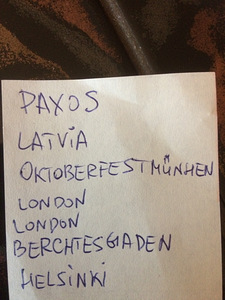 PAXOS
LATVIA
OKTOBERFESTMÜNHEN
LONDON
LONDON
BERCHTESGADEN
HELSINKI